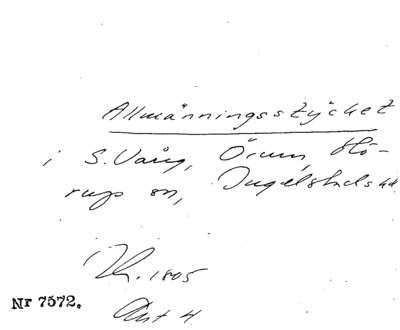 Allmänningsstycket
i S. Vång, Örum, Hö-
rup sn, Ingelstads hd
1805
Nr 7572.
Akt 4